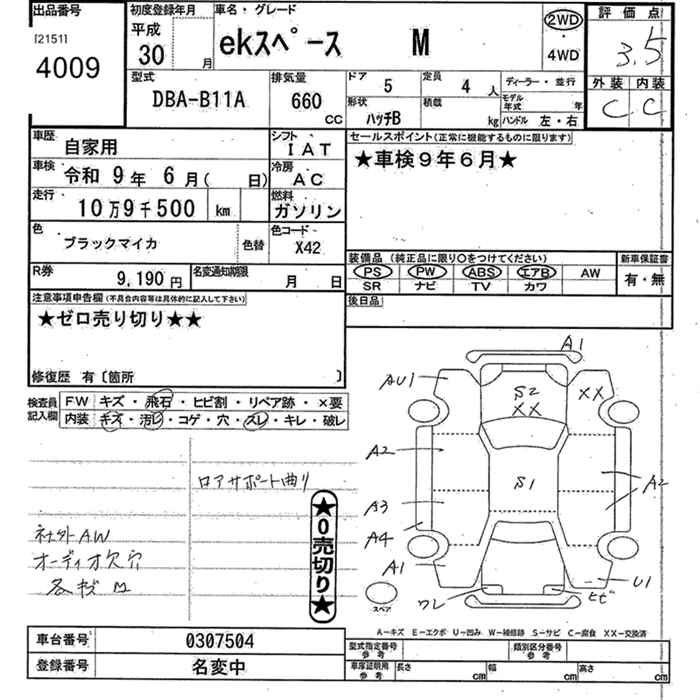 出品番号
[2151]
4009
初度登録年月
平成
30 月
車名・グレード
ekスペース M
2WD
・
4WD
評価点
3.5
外装 内装
C C
型式
DBA-B11A
排気量
660 CC
ドア
5
定員
4 人
ディーラー・並行
形状
ハッチB
積載
kg
モデル年式
年
ハンドル 左・右
車歴
自家用
シフト
IAT
車検
令和 9年 6月( 日)
冷房
AC
走行
10万9千500 km
燃料
ガソリン
色
ブラックマイカ
色替
色コード
X42
R券
9,190 円
名変通知期限
月 日
セールスポイント(正常に機能するものに限ります)
★車検9年6月★
装備品 (純正品に限り○をつけてください)
PS PW ABS エアB AW
SR ナビ TV カワ
新車保証書
有・無
後日品
注意事項申告欄(不具合内容等は具体的に記入して下さい)
★ゼロ売り切り★★
修復歴 有〔箇所 〕
検査員記入欄
FW キズ・飛石・ヒビ割・リペア跡・×要
内装 キズ・汚レ・コゲ・穴・スレ・キレ・破レ
ロアサポート曲り
社外AW
オーディオ欠穴
各キズ M
★0売切り★
A1
AU1
S2
XX
XX
A2
S1
A2
A3
A4
A1
U1
ワレ
ヒビ
スペア
A-キズ E-エクボ U-凹み W-補修跡 S-サビ C-腐食 XX-交換済
車台番号
0307504
登録番号
名変中
型式指定番号
参考
類別区分番号
参考
車庫証明用
参考
長さ cm
幅 cm
高さ cm